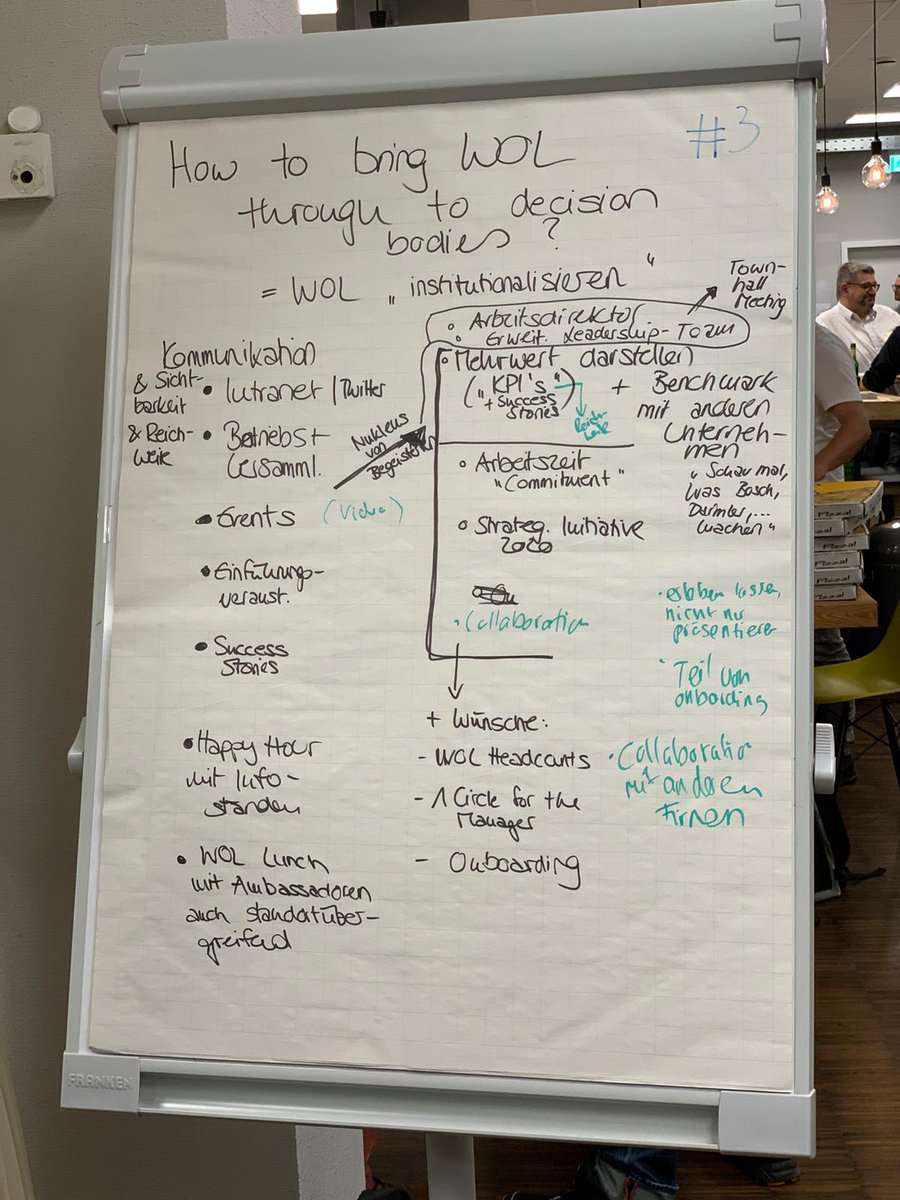 #3
How to bring WOL
through to decision
bodies?
= WOL „institutionalisieren"
Town-
hall
Meeting
• Arbeitsdirektor
• Erweit. Leadership-Team
Kommunikation
& Sicht-
barkeit
& Reich-
weite
• Intranet / Twitter
• Betriebs-
versamml.
• Events (Video)
• Einführungs-
veranst.
• Success
Stories
• Happy Hour
mit Info-
ständen
• WOL Lunch
mit Ambassadoren
auch standortüber-
greifend
Nukleus
von
Begeisterten
• Mehrwert darstellen
("KPI's"
+ Success
Stories)
Reich-
weite
+ Benchmark
mit anderen
Unterneh-
men
„Schau mal,
was Bosch,
Daimler,...
machen"
• Arbeitszeit
"Commitment"
• Strateg. Initiative
2020
• Collaboration
+ Wünsche:
- WOL Headcounts
- 1 Circle for the
Manager
- Onboarding
• erleben lassen,
nicht nur
präsentieren
• Teil von
onboarding
• Collaboration
mit anderen
Firmen
FRANKEN
Pizza!
Pizza!
Pizza!
Pizza!
Pizza!